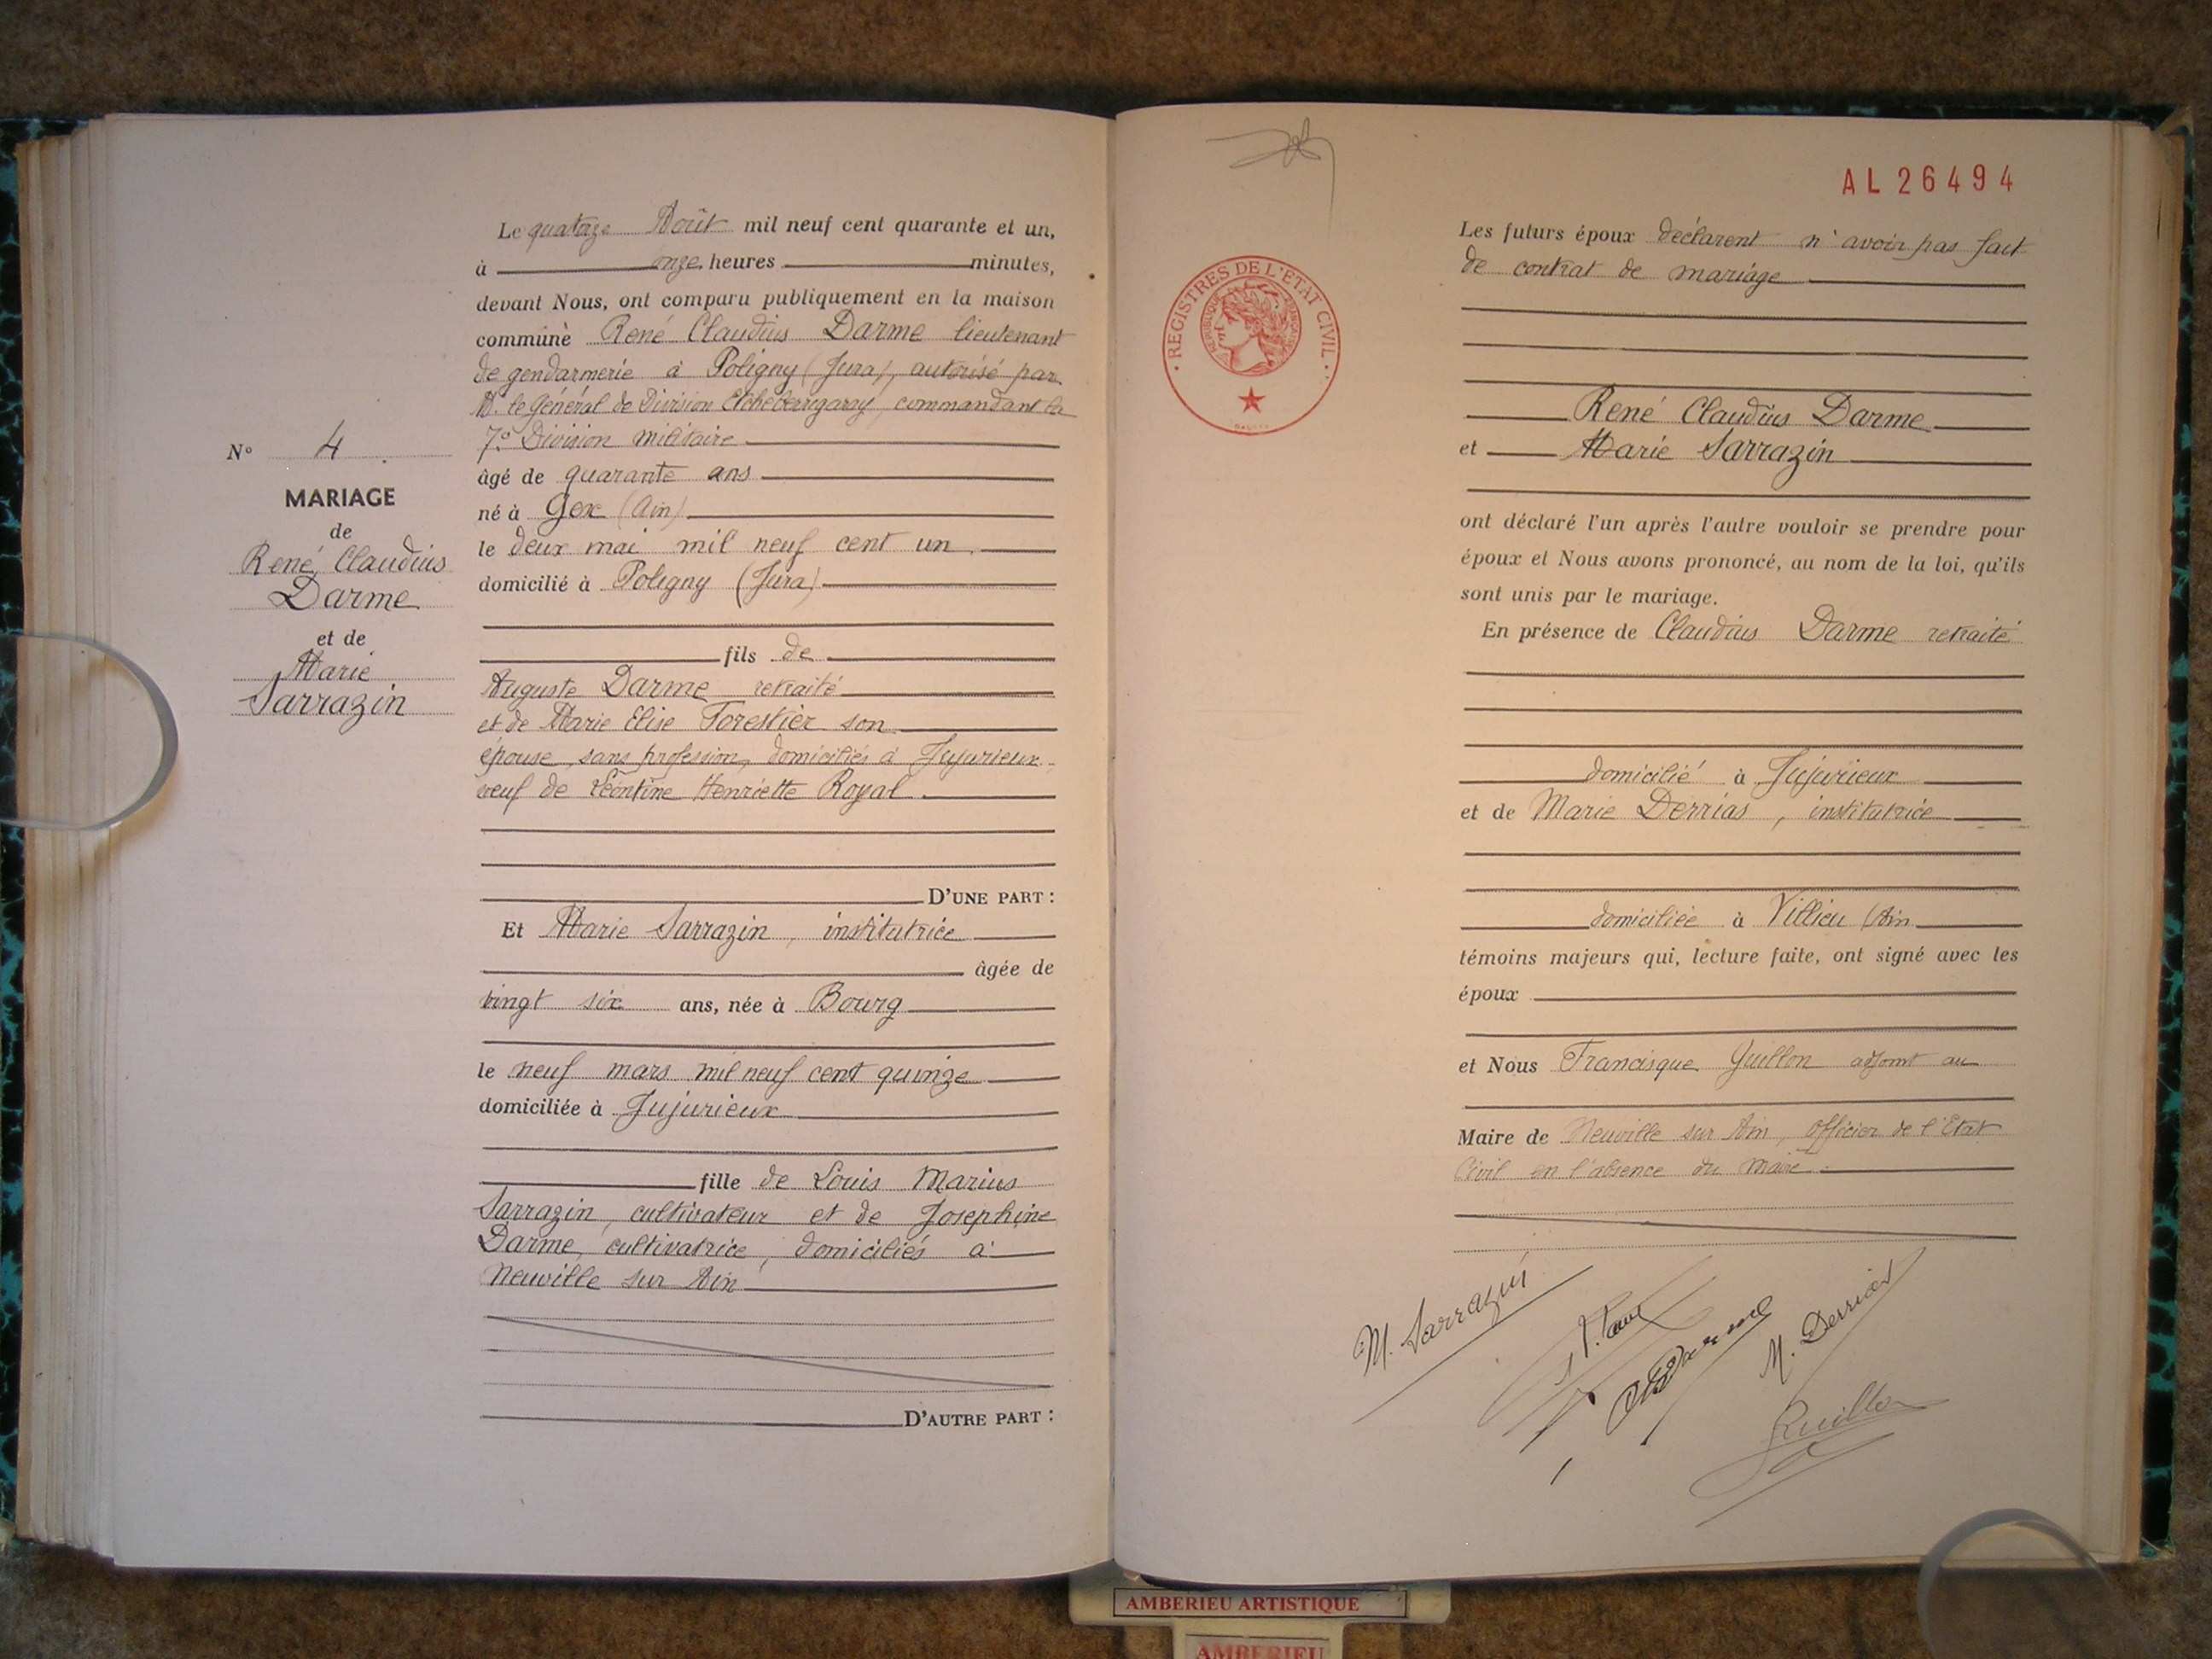 Le quatorze Août mil neuf cent quarante et un,
à onze heures minutes,
devant Nous, ont comparu publiquement en la maison
commune René Claudius Darme lieutenant
de gendarmerie à Poligny (Jura), autorisé par
M. le Général de Division Etcheberrigaray, commandant la
7e Division militaire
âgé de quarante ans
né à Gex (Ain)
le deux mai mil neuf cent un
domicilié à Poligny (Jura)
fils de
Auguste Darme retraité
et de Marie Elise Forestier son
épouse, sans profession, domiciliés à Jujurieux
veuf de Léontine Henriette Royal.
D'UNE PART :
Et Marie Sarrazin, institutrice
âgée de
vingt six ans, née à Bourg
le neuf mars mil neuf cent quinze
domiciliée à Jujurieux
fille de Louis Marius
Sarrazin, cultivateur et de Josephine
Darme, cultivatrice, domiciliés à
Neuville sur Ain
D'AUTRE PART :
N° 4.
MARIAGE
de
René Claudius
Darme
et de
Marie
Sarrazin
AL 26494
REGISTRES DE L'ETAT CIVIL
REPUBLIQUE FRANÇAISE
Les futurs époux déclarent n'avoir pas fait
de contrat de mariage
René Claudius Darme
et Marie Sarrazin
ont déclaré l'un après l'autre vouloir se prendre pour
époux et Nous avons prononcé, au nom de la loi, qu'ils
sont unis par le mariage.
En présence de Claudius Darme retraité
domicilié à Jujurieux
et de Marie Derrias, institutrice
domiciliée à Villieu (Ain
témoins majeurs qui, lecture faite, ont signé avec les
époux
et Nous Francisque Guillon adjoint au
Maire de Neuville sur Ain, Officier de l'Etat
Civil en l'absence du Maire.
M. Sarrazin
M. Derrias
Guillon
AMBERIEU ARTISTIQUE
AMBERIEU